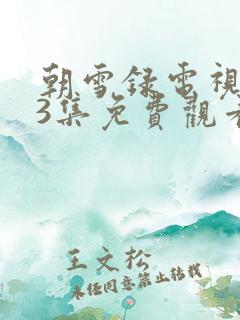 朝雪録電視
3集免費觀看
王文松
未經同意禁止轉載